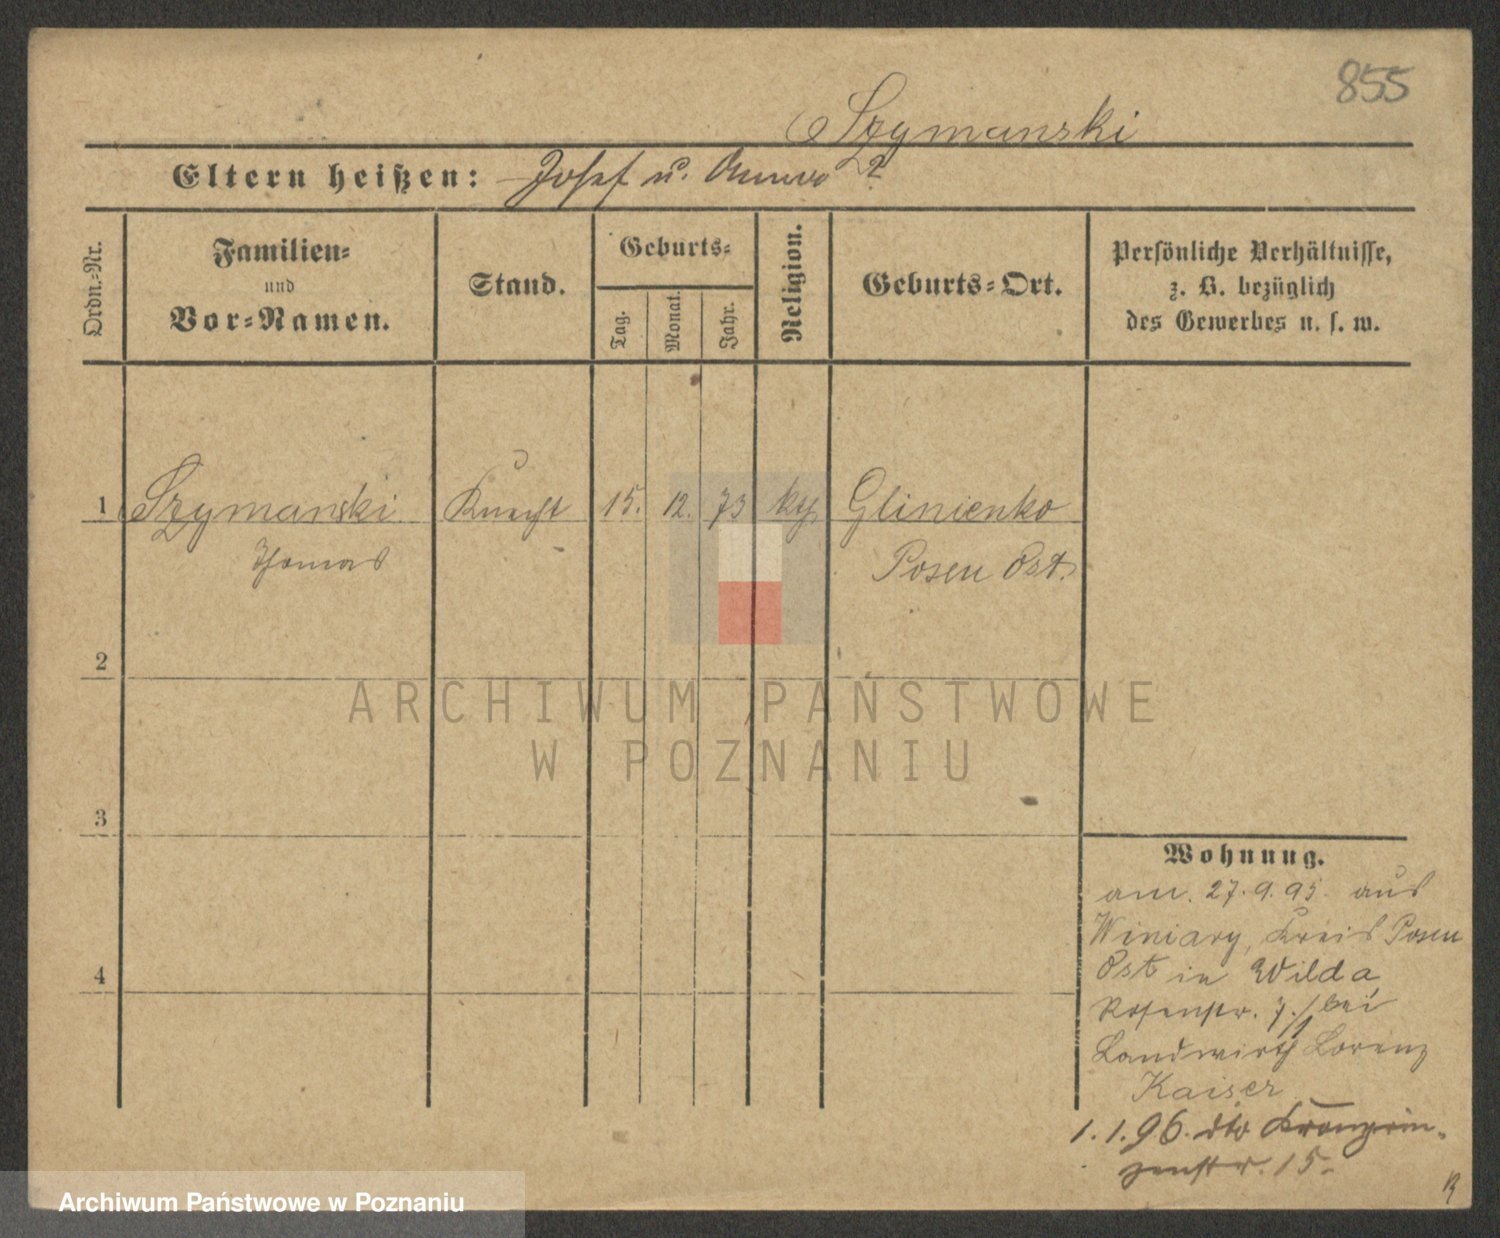 855
Szymanski
Eltern heißen: Josef u. Anna ?
Ordn.-Nr.
Familien-
und
Vor-Namen.
Stand.
Geburts-
Tag.
Monat.
Jahr.
Religion.
Geburts-Ort.
Persönliche Verhältnisse,
z. B. bezüglich
des Gewerbes u. s. w.
1 Szymanski Knecht 15. 12. 73 kth Glinienko
Thomas Posen Ost.
2
3
4
Wohnung.
am 27.9.95. aus
Winiary, Kreis Posen
Ost in Wilda,
Rosenstr. 7. bei
Landwirth Lorenz
Kaiser
1.1.96. dto Kronprin-
zenstr. 15.
ARCHIWUM PAŃSTWOWE
W POZNANIU
Archiwum Państwowe w Poznaniu